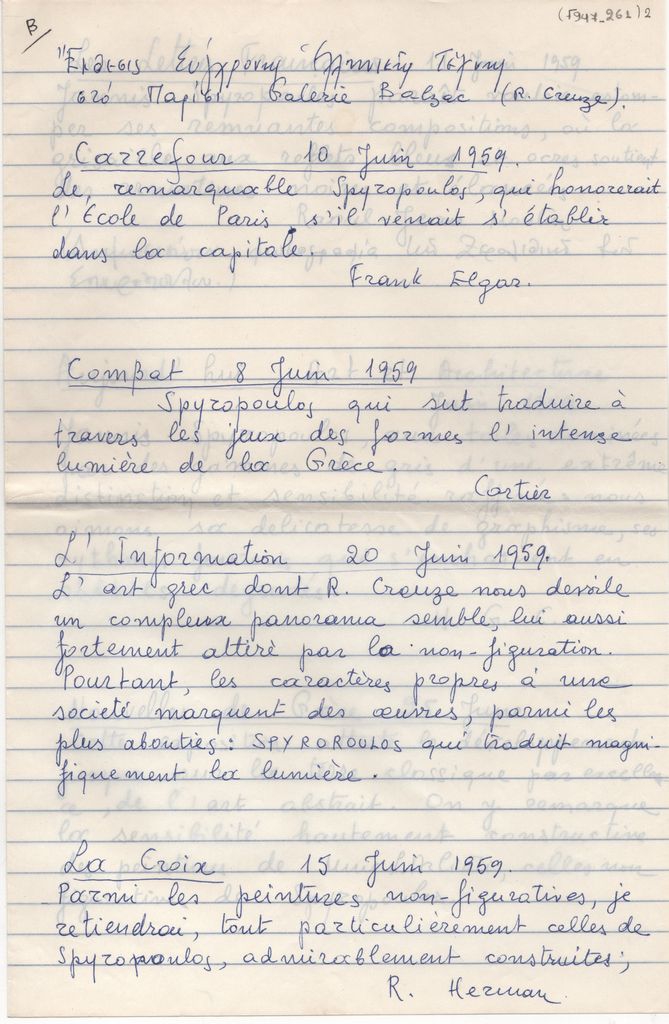 (5947_261)2
B/
"Έκθεσις Σύγχρονη Ελληνική Τέχνη
στό Παρίσι Galerie Balzac (R. Creuze).
Carrefour 10 Juin 1959.
Le remarquable Spyropoulos, qui honorerait
l'École de Paris s'il venait s'établir
dans la capitale.
Frank Elgar.
Combat 8 Juin 1959
Spyropoulos qui sut traduire à
travers les jeux des formes l'intense
lumière de la Grèce.
Cartier
L'Information 20 Juin 1959.
L'art grec dont R. Creuze nous devoile
un complexe panorama semble, lui aussi
fortement attiré par la non-figuration.
Pourtant, les caractères propres à une
societé marquent des œuvres, parmi les
plus abouties: SPYROROULOS qui traduit magni-
fiquement la lumière.
La Croix 15 Juin 1959.
Parmi les peintures non-figuratives, je
retiendrai, tout particulièrement celles de
Spyropoulos, admirablement construites;
R. Herman.